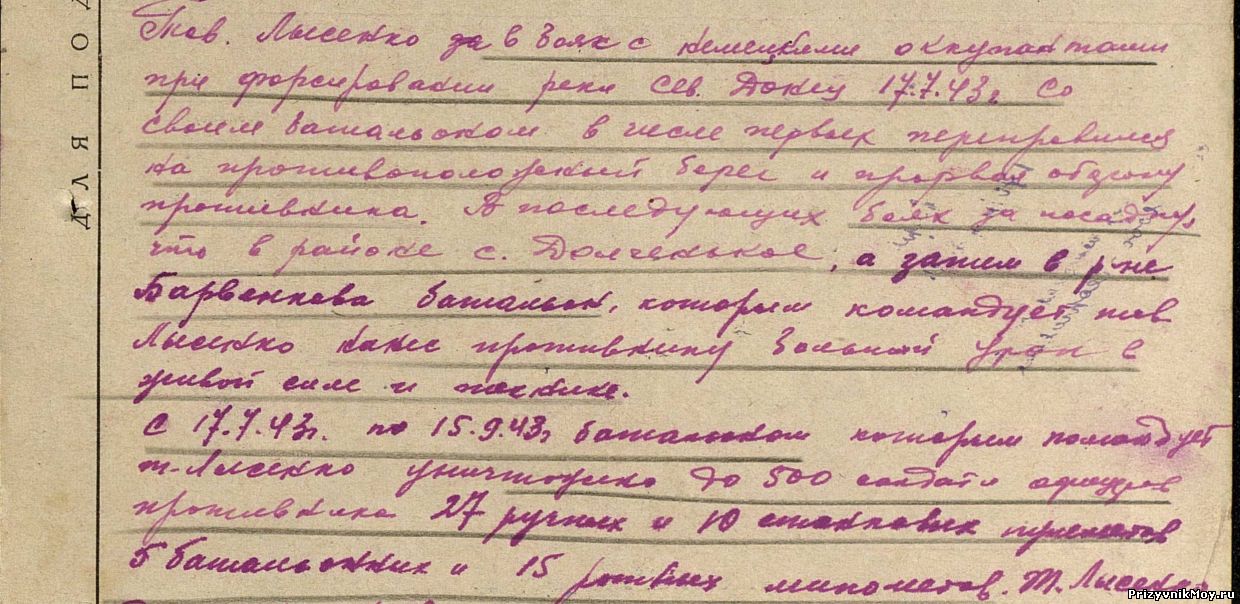 Тов. Лысенко за в боях с немецкими оккупантами
при форсировании реки Сев. Донец 17.7.43г. со
своим батальоном в числе первых переправился
на противоположный берег и прорвал оборону
противника. В последующих боях за
что в районе с. Долгенькое, а затем в р-не
Барвенкова батальон, которым командует тов
Лысенко нанес противнику большой урон в
живой силе и технике.
С 17.7.43г. по 15.9.43г батальоном которым командует
т. Лысенко уничтожено до 500 солдат и офицеров
противника 27 ручных и 10 станковых пулеметов
5 батальонных и 15 ротных минометов. Т. Лысенко
ДЛЯ ПОД
PrizyvnikMoy.ru